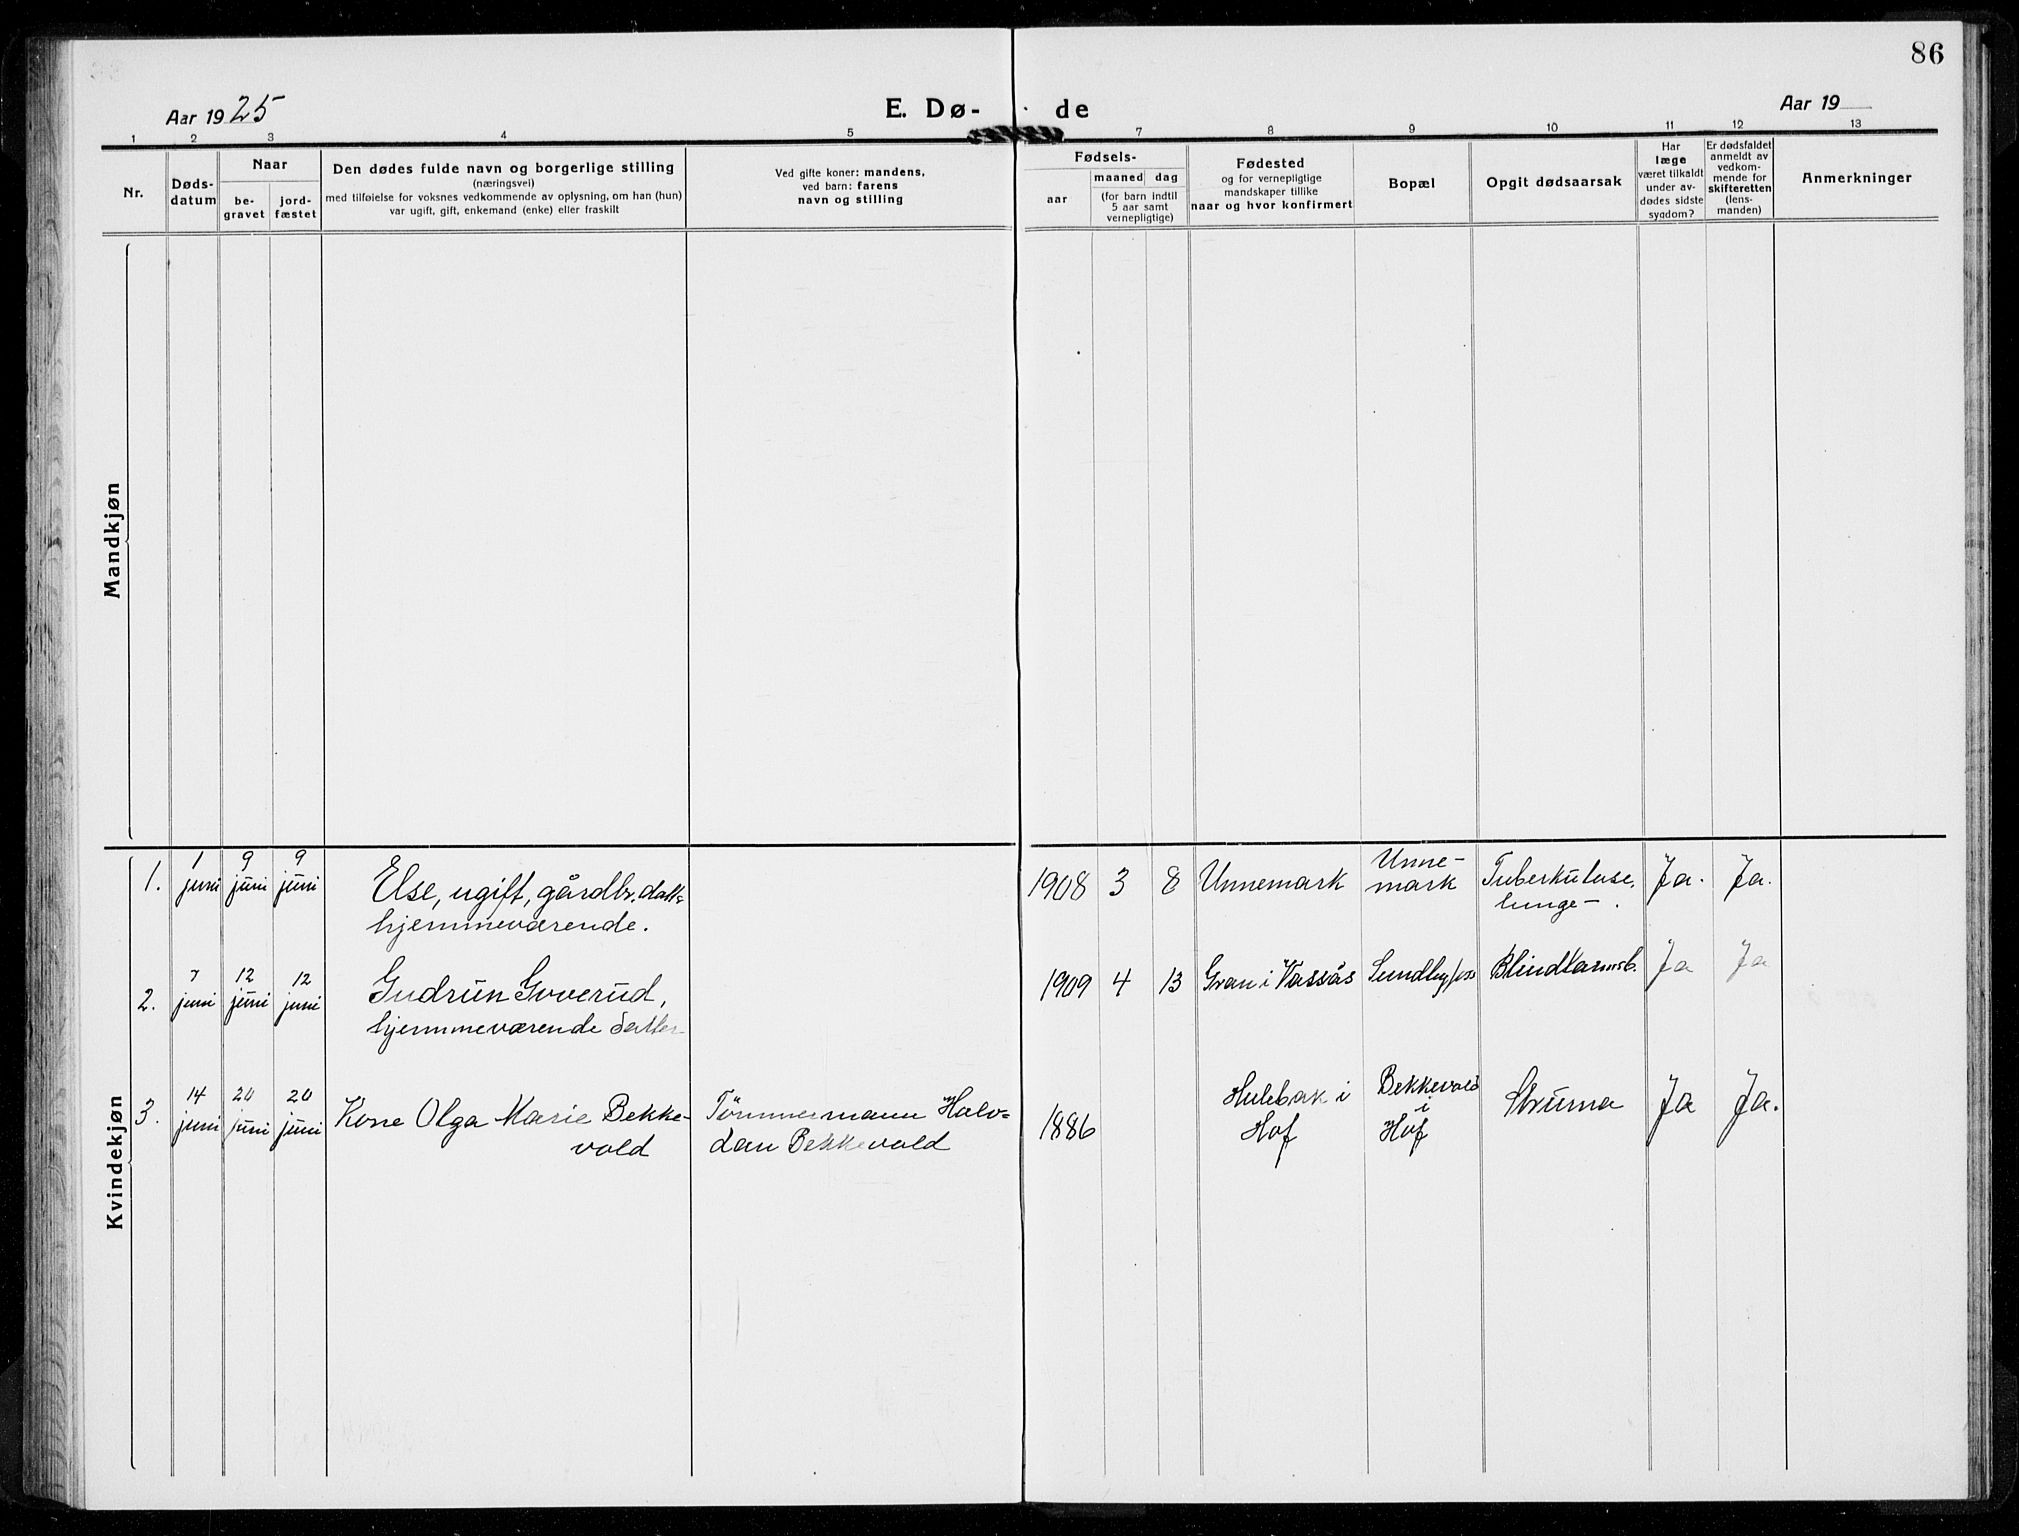 86
Aar 1925
E. Dø-
de
Aar 19
1 2 3 4 5 7 8 9 10 11 12 13
Nr.
Døds-
datum
Naar
be-
gravet
jord-
fæstet
Den dødes fulde navn og borgerlige stilling
(næringsvei)
med tilføielse for voksnes vedkommende av oplysning, om han (hun)
var ugift, gift, enkemand (enke) eller fraskilt
Ved gifte koner: mandens,
ved barn: farens
navn og stilling
Fødsels-
aar
maaned dag
(for barn indtil
5 aar samt
vernepligtige)
Fødested
og for vernepligtige
mandskaper tillike
naar og hvor konfirmert
Bopæl
Opgit dødsaarsak
Har
læge
været tilkaldt
under av-
dødes sidste
sygdom?
Er dødsfaldet
anmeldt av
vedkom-
mende for
skifteretten
(lens-
manden)
Anmerkninger
Mandkjøn
Kvindekjøn
1.
1
juni
9
juni
9
juni
Else, ugift, gårdbr. datt=
hjemmeværende.
1908 3 8
Unnemark
Unne-
mark
Tuberkulose,
lunge-.
Ja.
Ja.
2.
7
juni
12
juni
12
juni
Gudrun Goverud,
hjemmeværende datter
1909 4 13
Gran i Vassås
Sundbyfoss
Blindtarmsb.
Ja
Ja
3.
14
juni
20
juni
20
juni
Kone Olga Marie Bekke-
vold
Tömmermann Halv=
dan Bekkevold
1886
Hulebak i
Hof
Bekkevold
i
Hof
Struma
Ja
Ja.